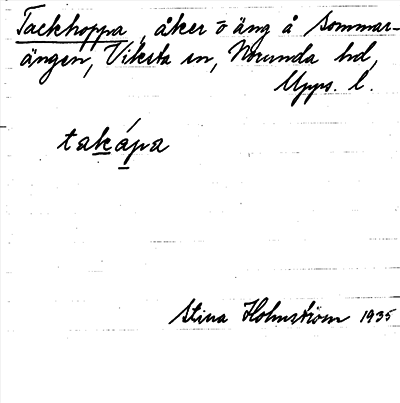 Tackhoppa, åker o äng å Sommar-
ängen, Viksta sn, Norunda hd,
Upps. l.
takápa
Stina Holmström 1935